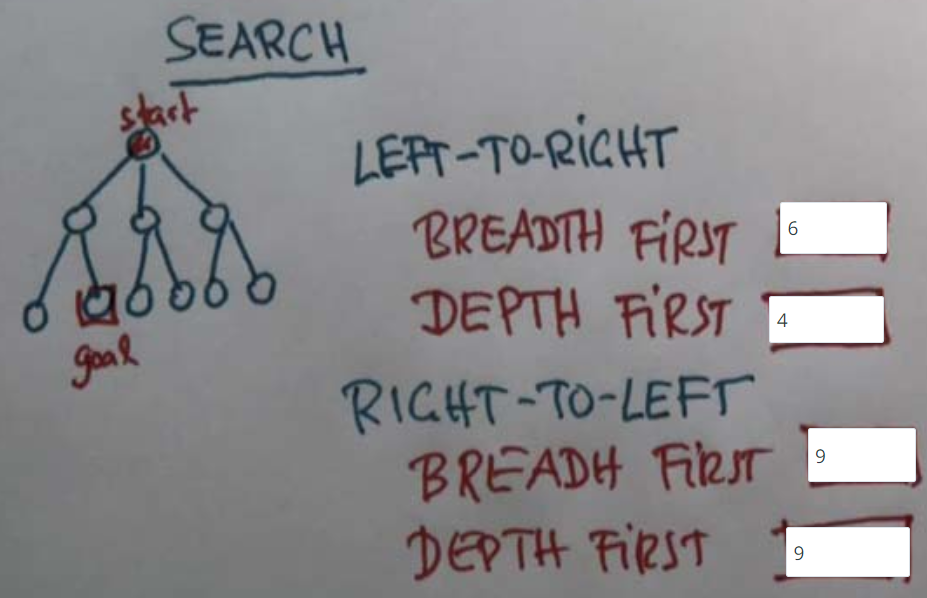 SEARCH
start
LEFT-TO-RIGHT
BREADTH FIRST 6
DEPTH FIRST 4
goal
RIGHT-TO-LEFT
BREADH FIRST 9
DEPTH FIRST 9